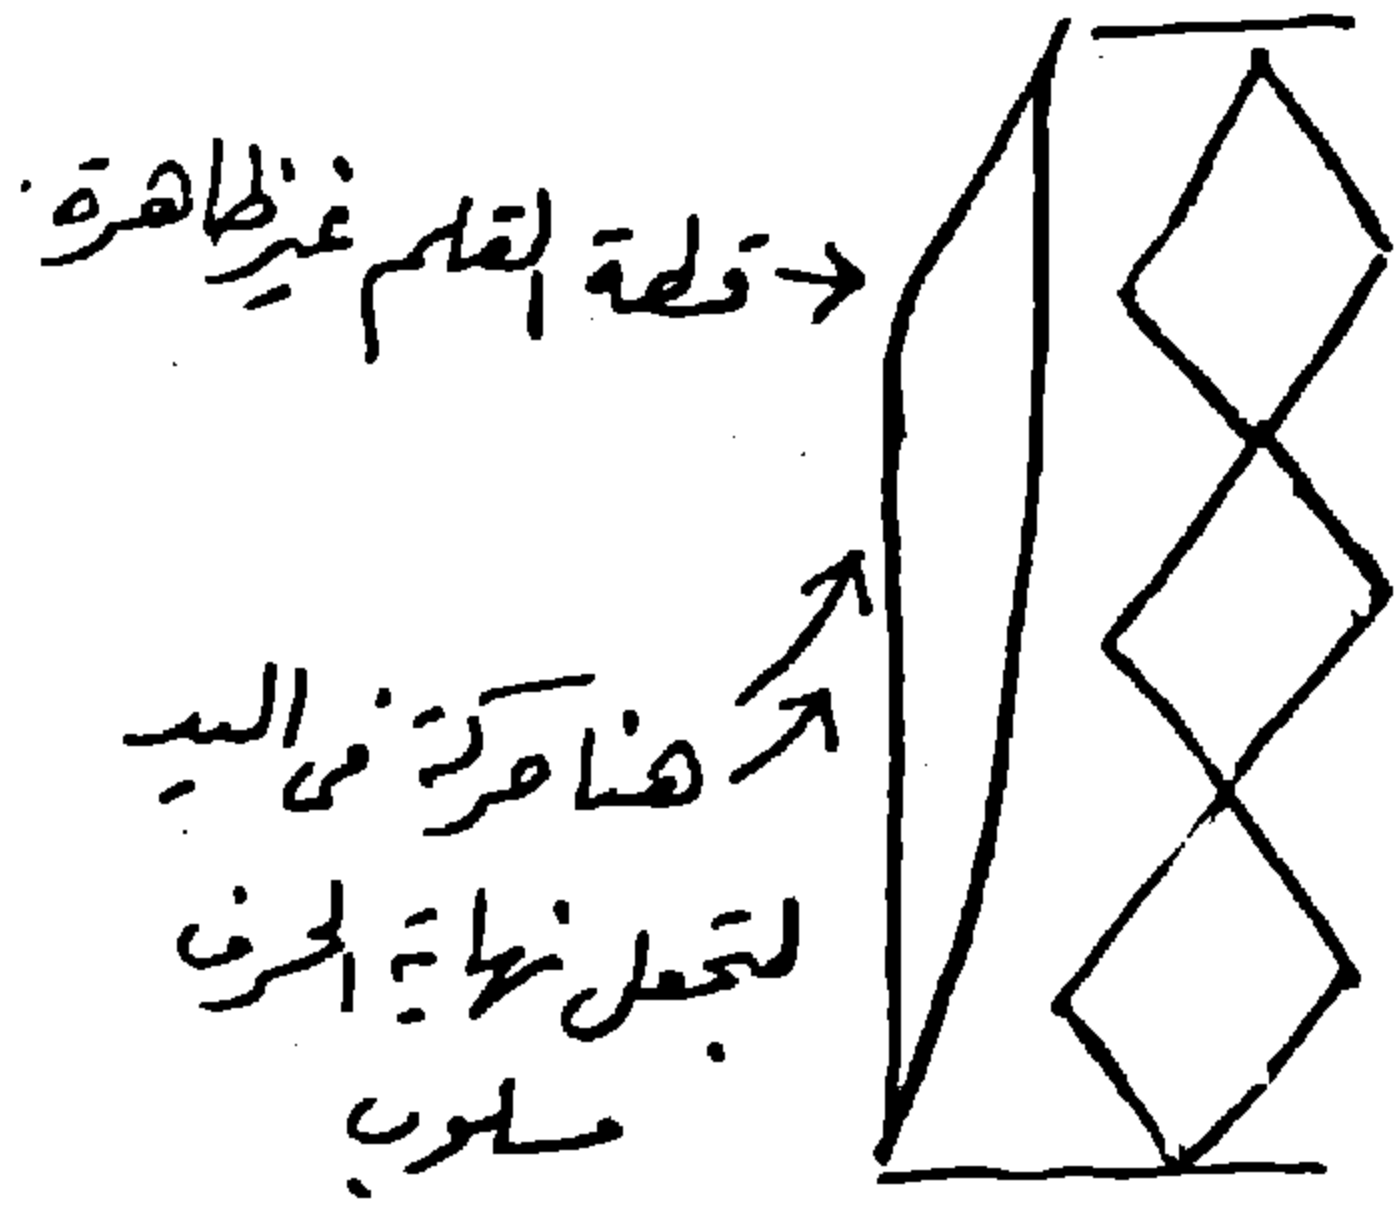 قطة القلم غير ظاهرة .
هنا حركة فى اليد
لتجعل نهاية الحرف
مسلوب